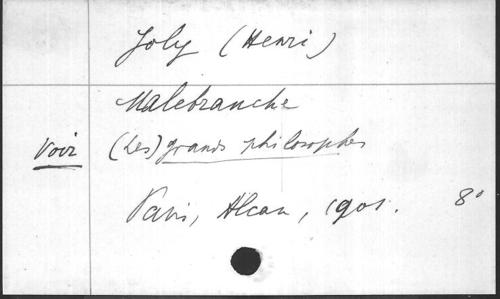 Joly (Henri)
Malebranche
Voir (Les) grands philosophes
Paris, Alcan, 1901. 8°